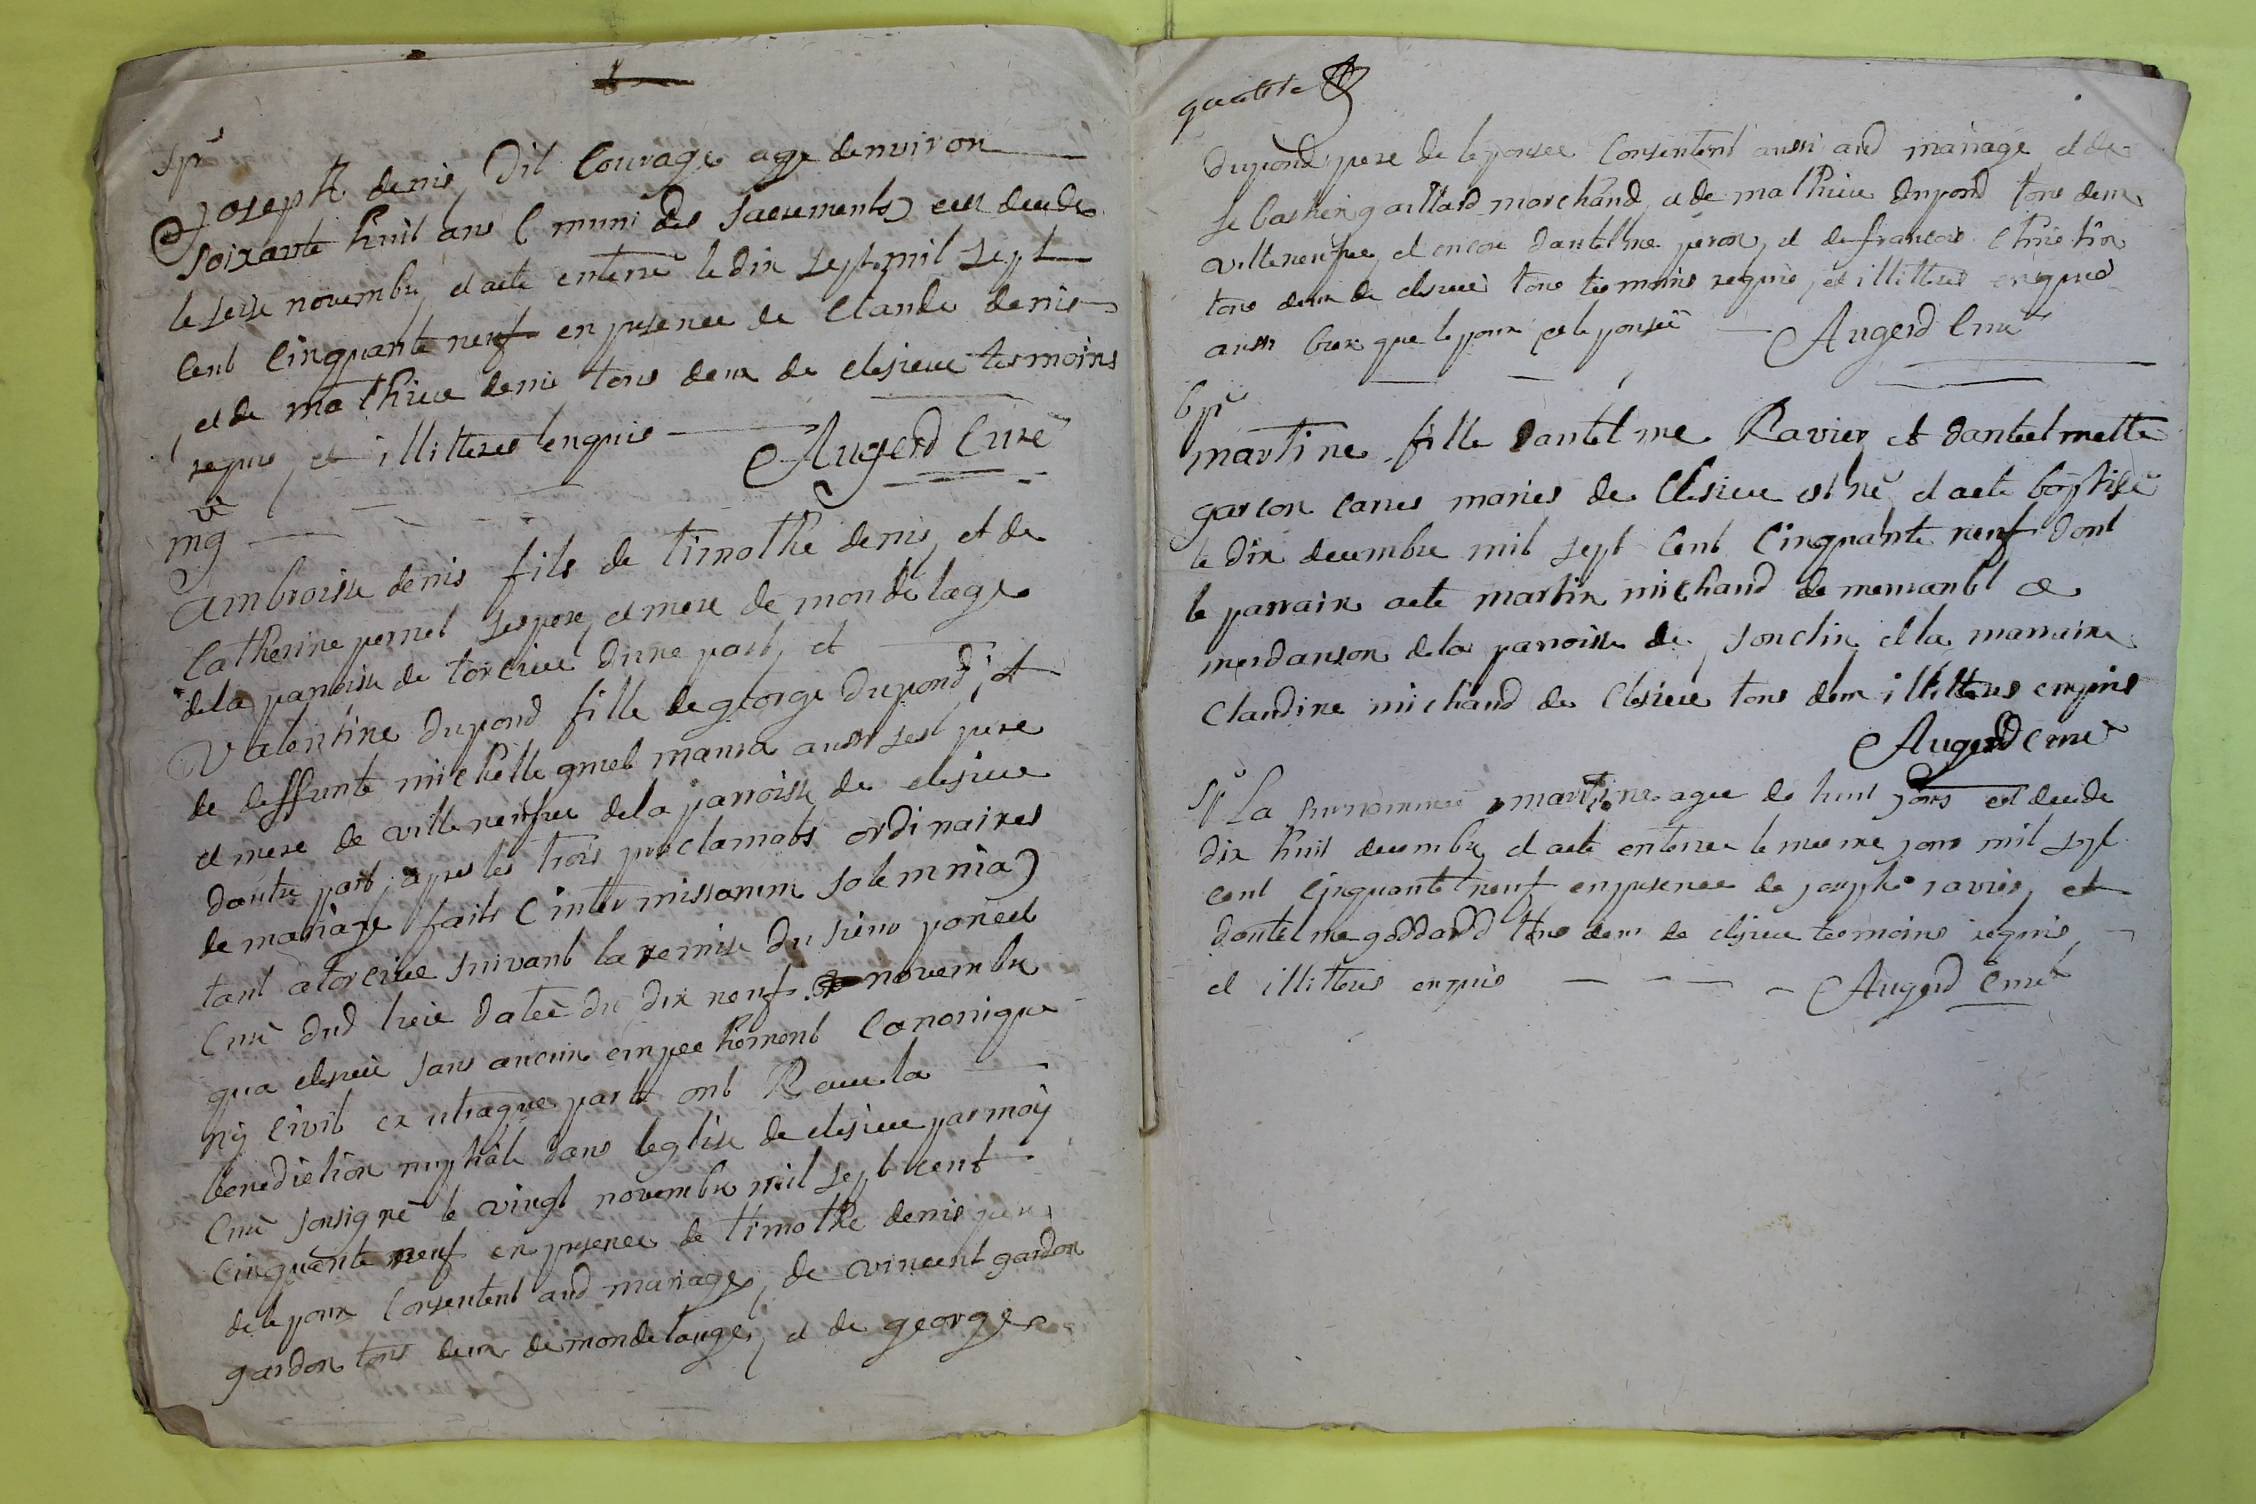 spr
Joseph denis, Dit Courage age denviron
soixante huit ans (muni des sacrements) est decede
le seize novembre, et acte enterré le dix sept mil sept
cent cinquante neuf en presence de Claude denis
et de mathieu denis tous deux de clesieu tesmoins
requis, et illitteres enquis Augerd Curé
mg
Ambroise denis fils de timothé denis, et de
Catherine pernet ses pere, et mere de mondelage
de la parroisse de torcieu dune part, et
Valentine Dupond fille de george Dupond, et
de deffunte michelle aussi ses pere
et mere de villeneufve de la parroisse de clesieu
dautre part, apres les trois proclamaos ordinaires
de mariage faits (inter missarum solemnia)
tant a torcieu suivant la remise du sieur poncet
Curé dud lieu datée du dix neuf novembre
qua clesieu sans aucun empechement Canonique
ny Civil ex utraque parte ont Receu la
benediction nuptiale dans leglise de clesieu par moÿ
Curé sousigné le vingt novembre mil sept cent
Cinquante neuf en presence de timothé denis pere
de lepoux Consentent aud mariage, de vincent gardon
gardon tous deux de mondelange, et de george
quatre
Dupond pere de leponsee Consentent aussi aud mariage, et de
sebastien gaillard marchand, et de mathieu dupond tous deux
villeneufve, et encore dantelme peron, et de francois Chrietin
tous deux de clesieu tous tesmoins requis, et illitteres enquis
aussi bien que lepoux et leponsée Augerd Curé
bpr
martine fille dantelme Ravier, et dantelmette
garcon mariés de Clesieu est né et acte baptisée
le dix decembre mil sept Cent Cinquante neuf dont
le parrain acte martin michaud de et
de la parroisse de Jonclin et la marraine
Claudine michaud de Clesieu tous deux illitteres enquis
Augerd Curé
spr La surnommée martine agee de huit jours est decede
dix huit decembre, et acte enterrée le mesme jour mil sept
cent cinquante neuf en presence de joseph ravier, et
dantelme goddard tous deux de clesieu tesmoins requis,
et illitteres enquis Augerd Curé